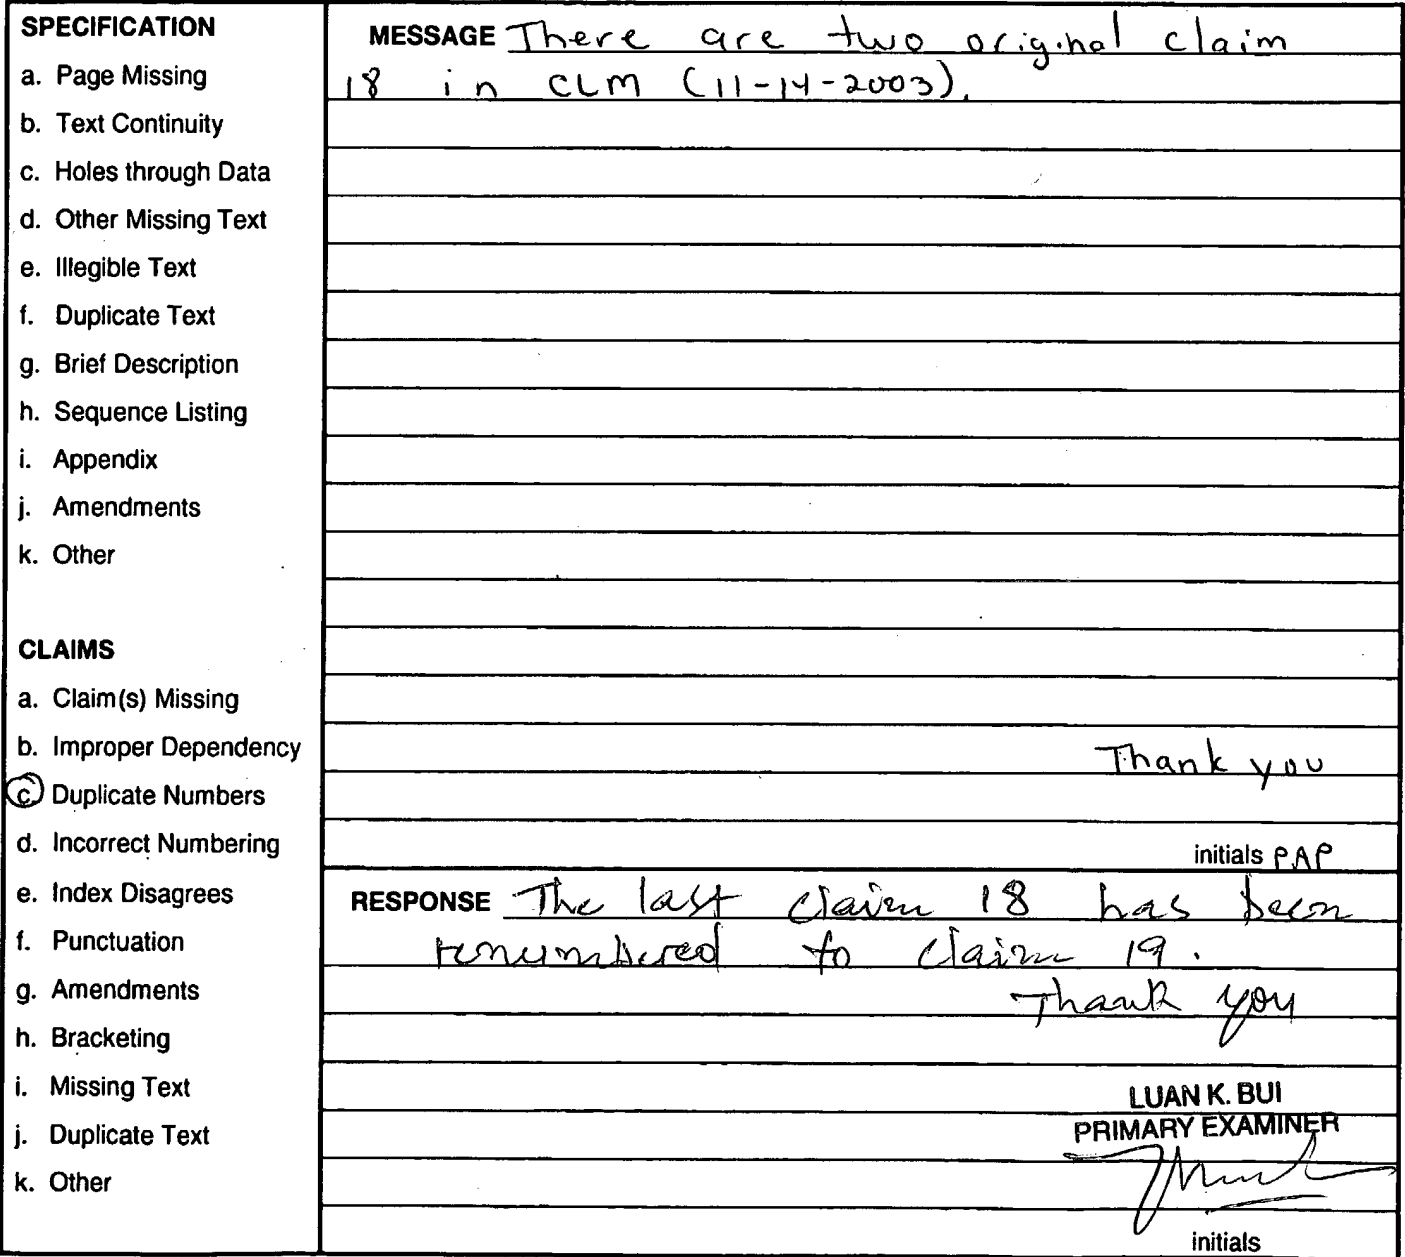 SPECIFICATION
a. Page Missing
b. Text Continuity
c. Holes through Data
d. Other Missing Text
e. Illegible Text
f. Duplicate Text
g. Brief Description
h. Sequence Listing
i. Appendix
j. Amendments
k. Other
CLAIMS
a. Claim(s) Missing
b. Improper Dependency
c. Duplicate Numbers
d. Incorrect Numbering
e. Index Disagrees
f. Punctuation
g. Amendments
h. Bracketing
i. Missing Text
j. Duplicate Text
k. Other
MESSAGE There are two original claim
18 in CLM (11-14-2003).
Thank you
initials PAP
RESPONSE The last claim 18 has been
renumbered to claim 19.
Thank you
LUAN K. BUI
PRIMARY EXAMINER
initials